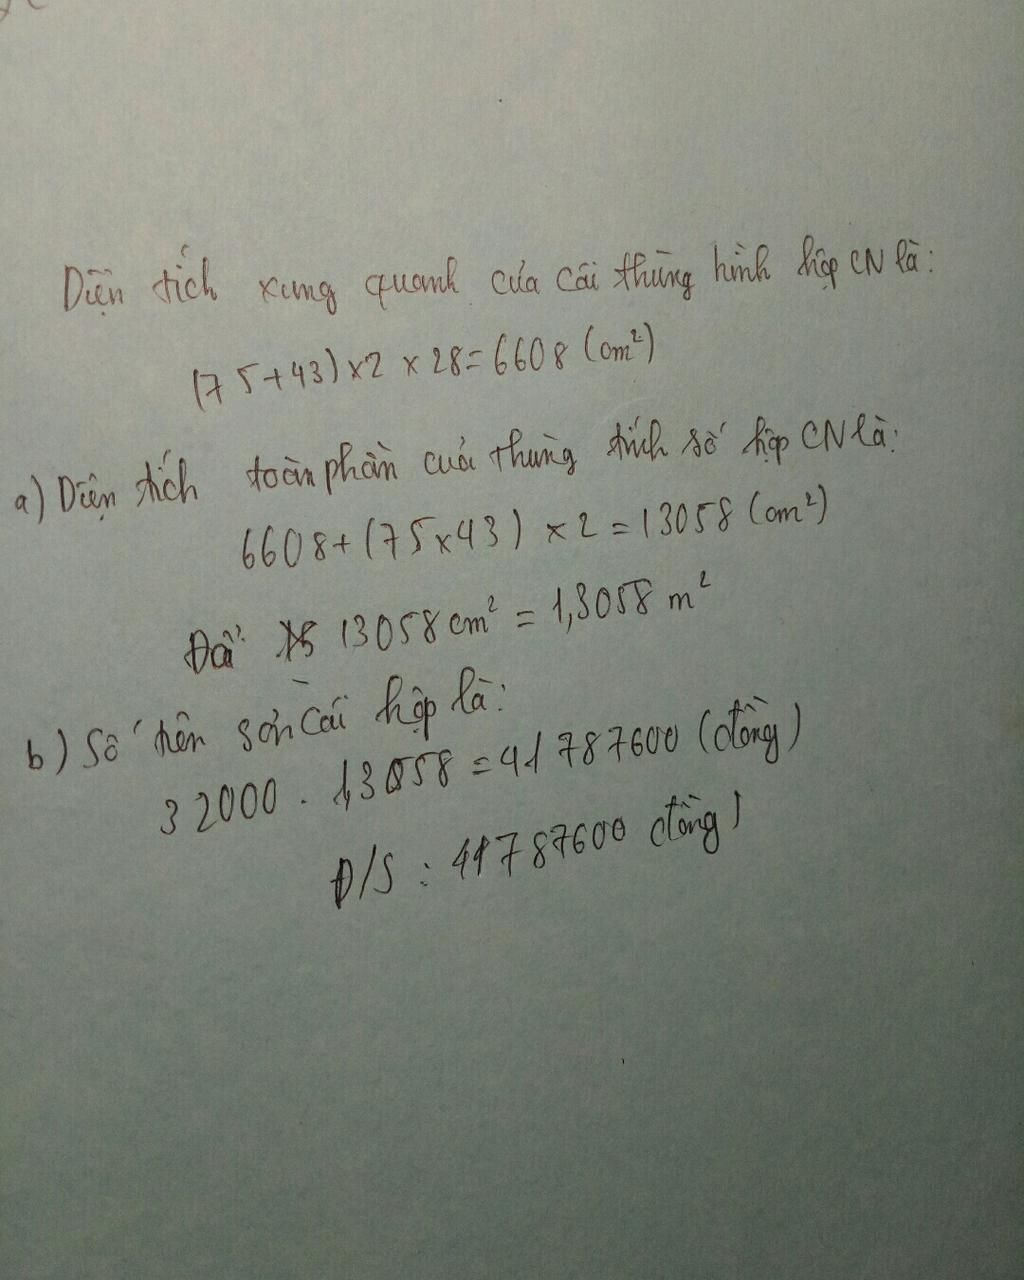 Diện tích xung quanh của cái thùng hình hộp CN là:
(75+43)×2 × 28=6608 (cm²)
a) Diện tích toàn phần cuả thùng tích số hộp CN là:
6608+(75×43) ×2=13058 (cm²)
Đổi 13058cm² = 1,3058 m²
b) Số tiền sơn cái hộp là:
32000 . 1,3058 =41 787600 (đồng)
Đ/S : 41787600 đồng)